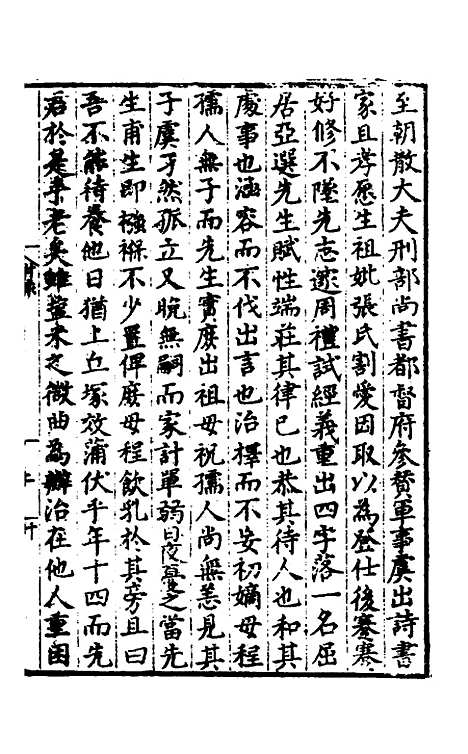 至朝散大夫刑部尚書都督府參贊軍事虞出詩書
家且孝愿生祖妣張氏割愛因取以為登仕後蹇蹇
好修不墜先志邃周禮試經義重出四字落一名屈
居亞選先生賦性端莊其律已也恭其待人也和其
處事也涵容而不伐出言也治擇而不妄初嫡母程
孺人無子而先生實庶出祖母祝孺人尚無恙見其
子虞孑然孤立又晚無嗣而家計單弱日夜憂之當先
生甫生即襁褓不少置俾庶母程飲乳於其旁且曰
吾不能待養他日猶上丘塚效蒲伏乎年十四而先
君於是乎老矣雖鹽米之微曲為辦治在他人重困
附錄
十